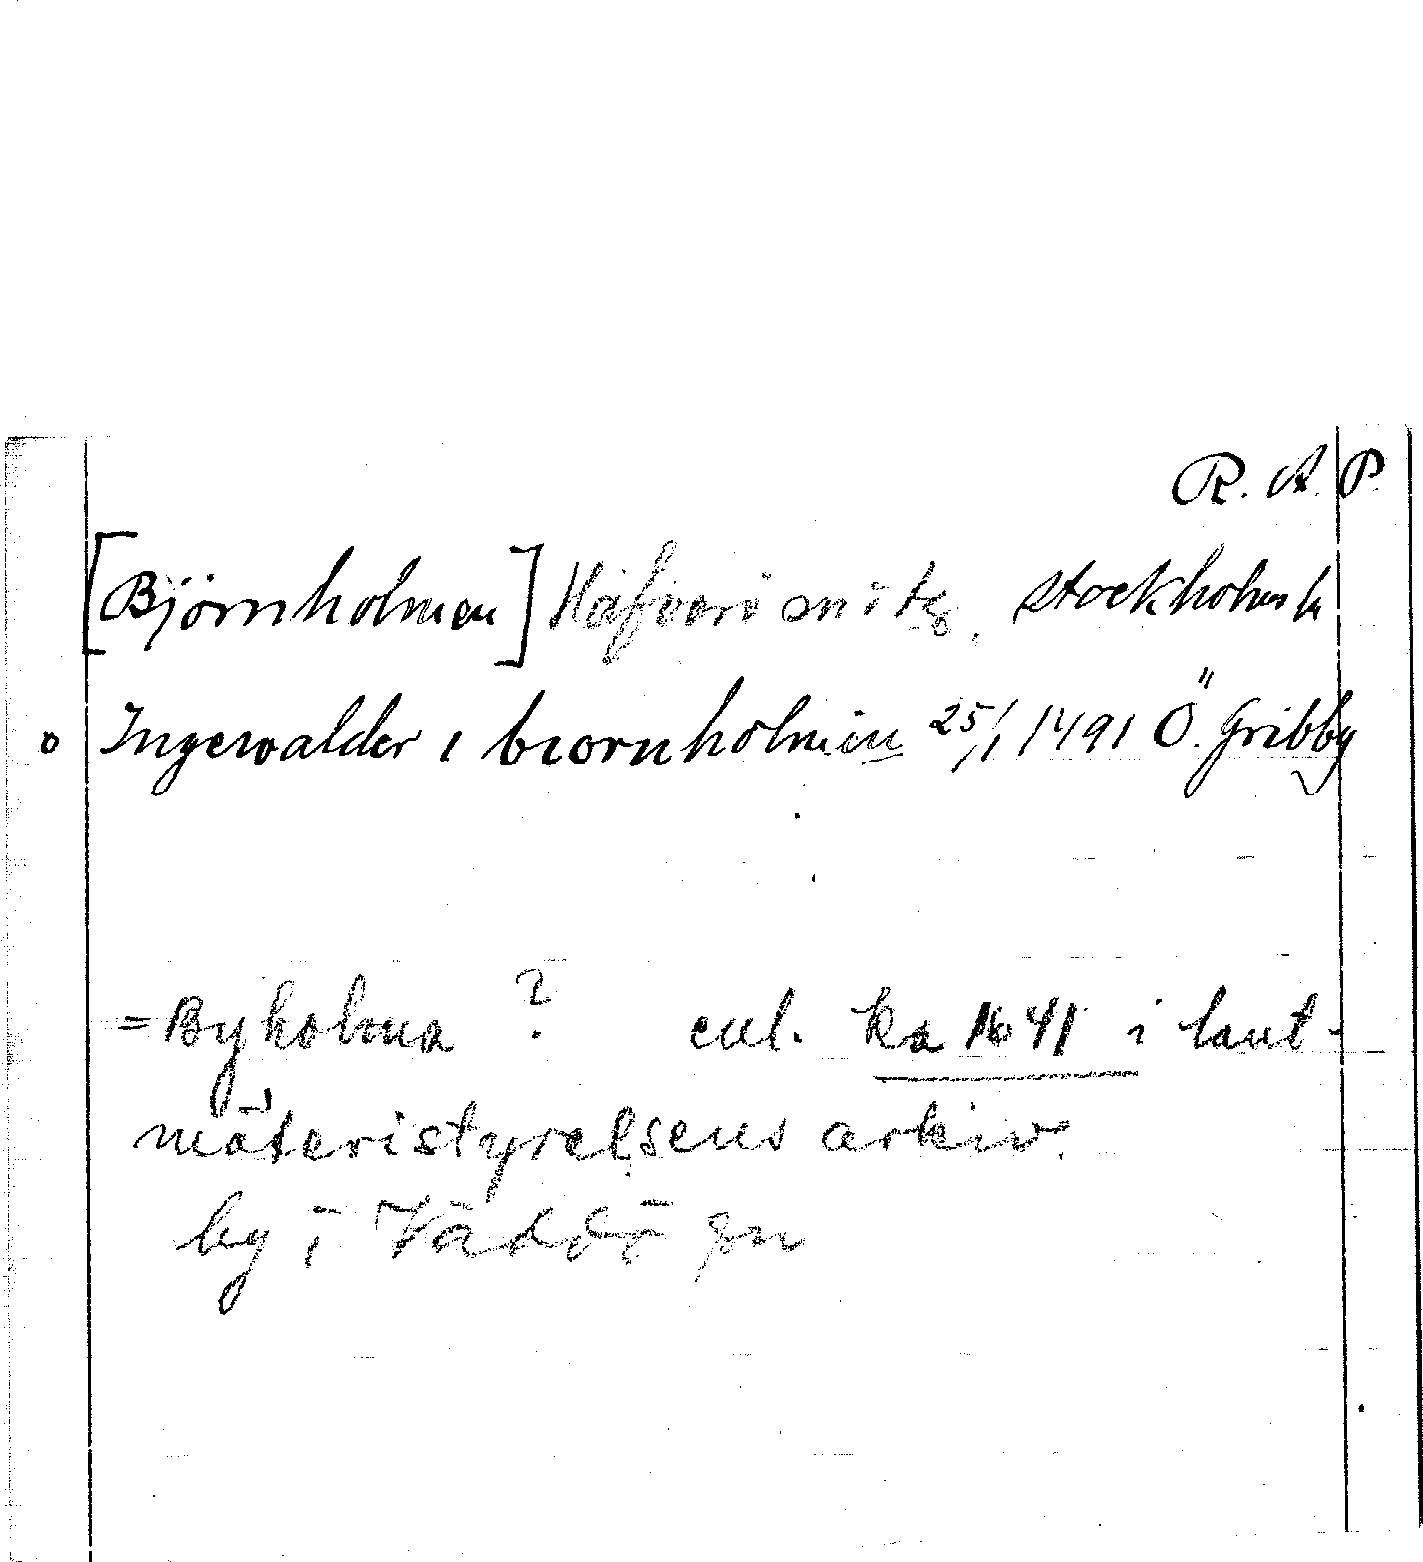 R. A. P.
[Björnholmen] Häfverö sn Stockholms ln
o Ingewalder i biornholmen 25/1 1491 Ö. Gribby
= Byholma ? enl. ka 1641 i lant-
mäteristyrelsens arkiv.
by i Väddö sn